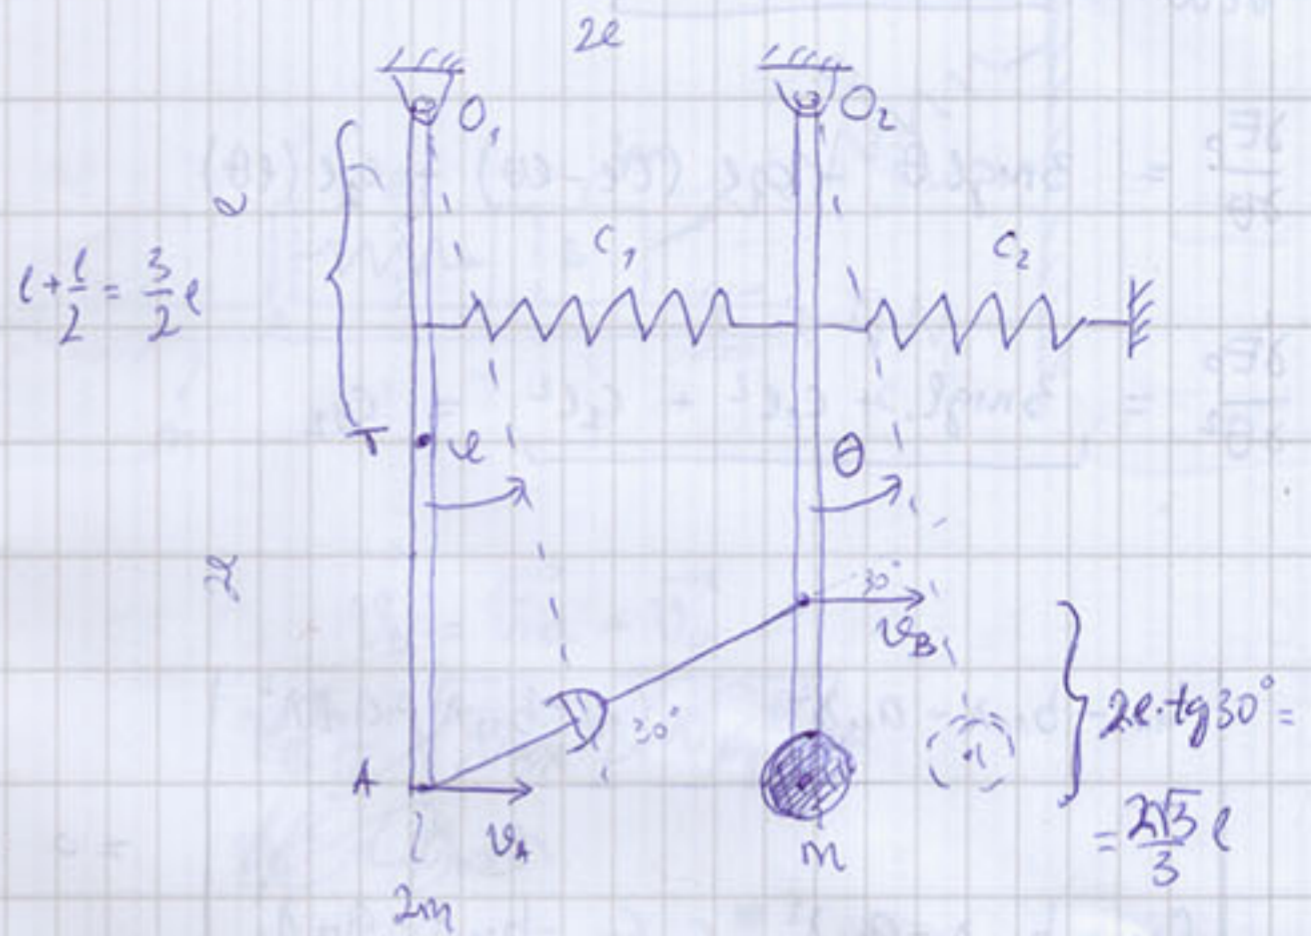 2l
O₁
O₂
l
l + l/2 = 3/2 l
C₁
C₂
T
φ
θ
2l
30°
v_B
30°
2l·tg30° =
= 2√3/3 l
A
v_A
2m
m